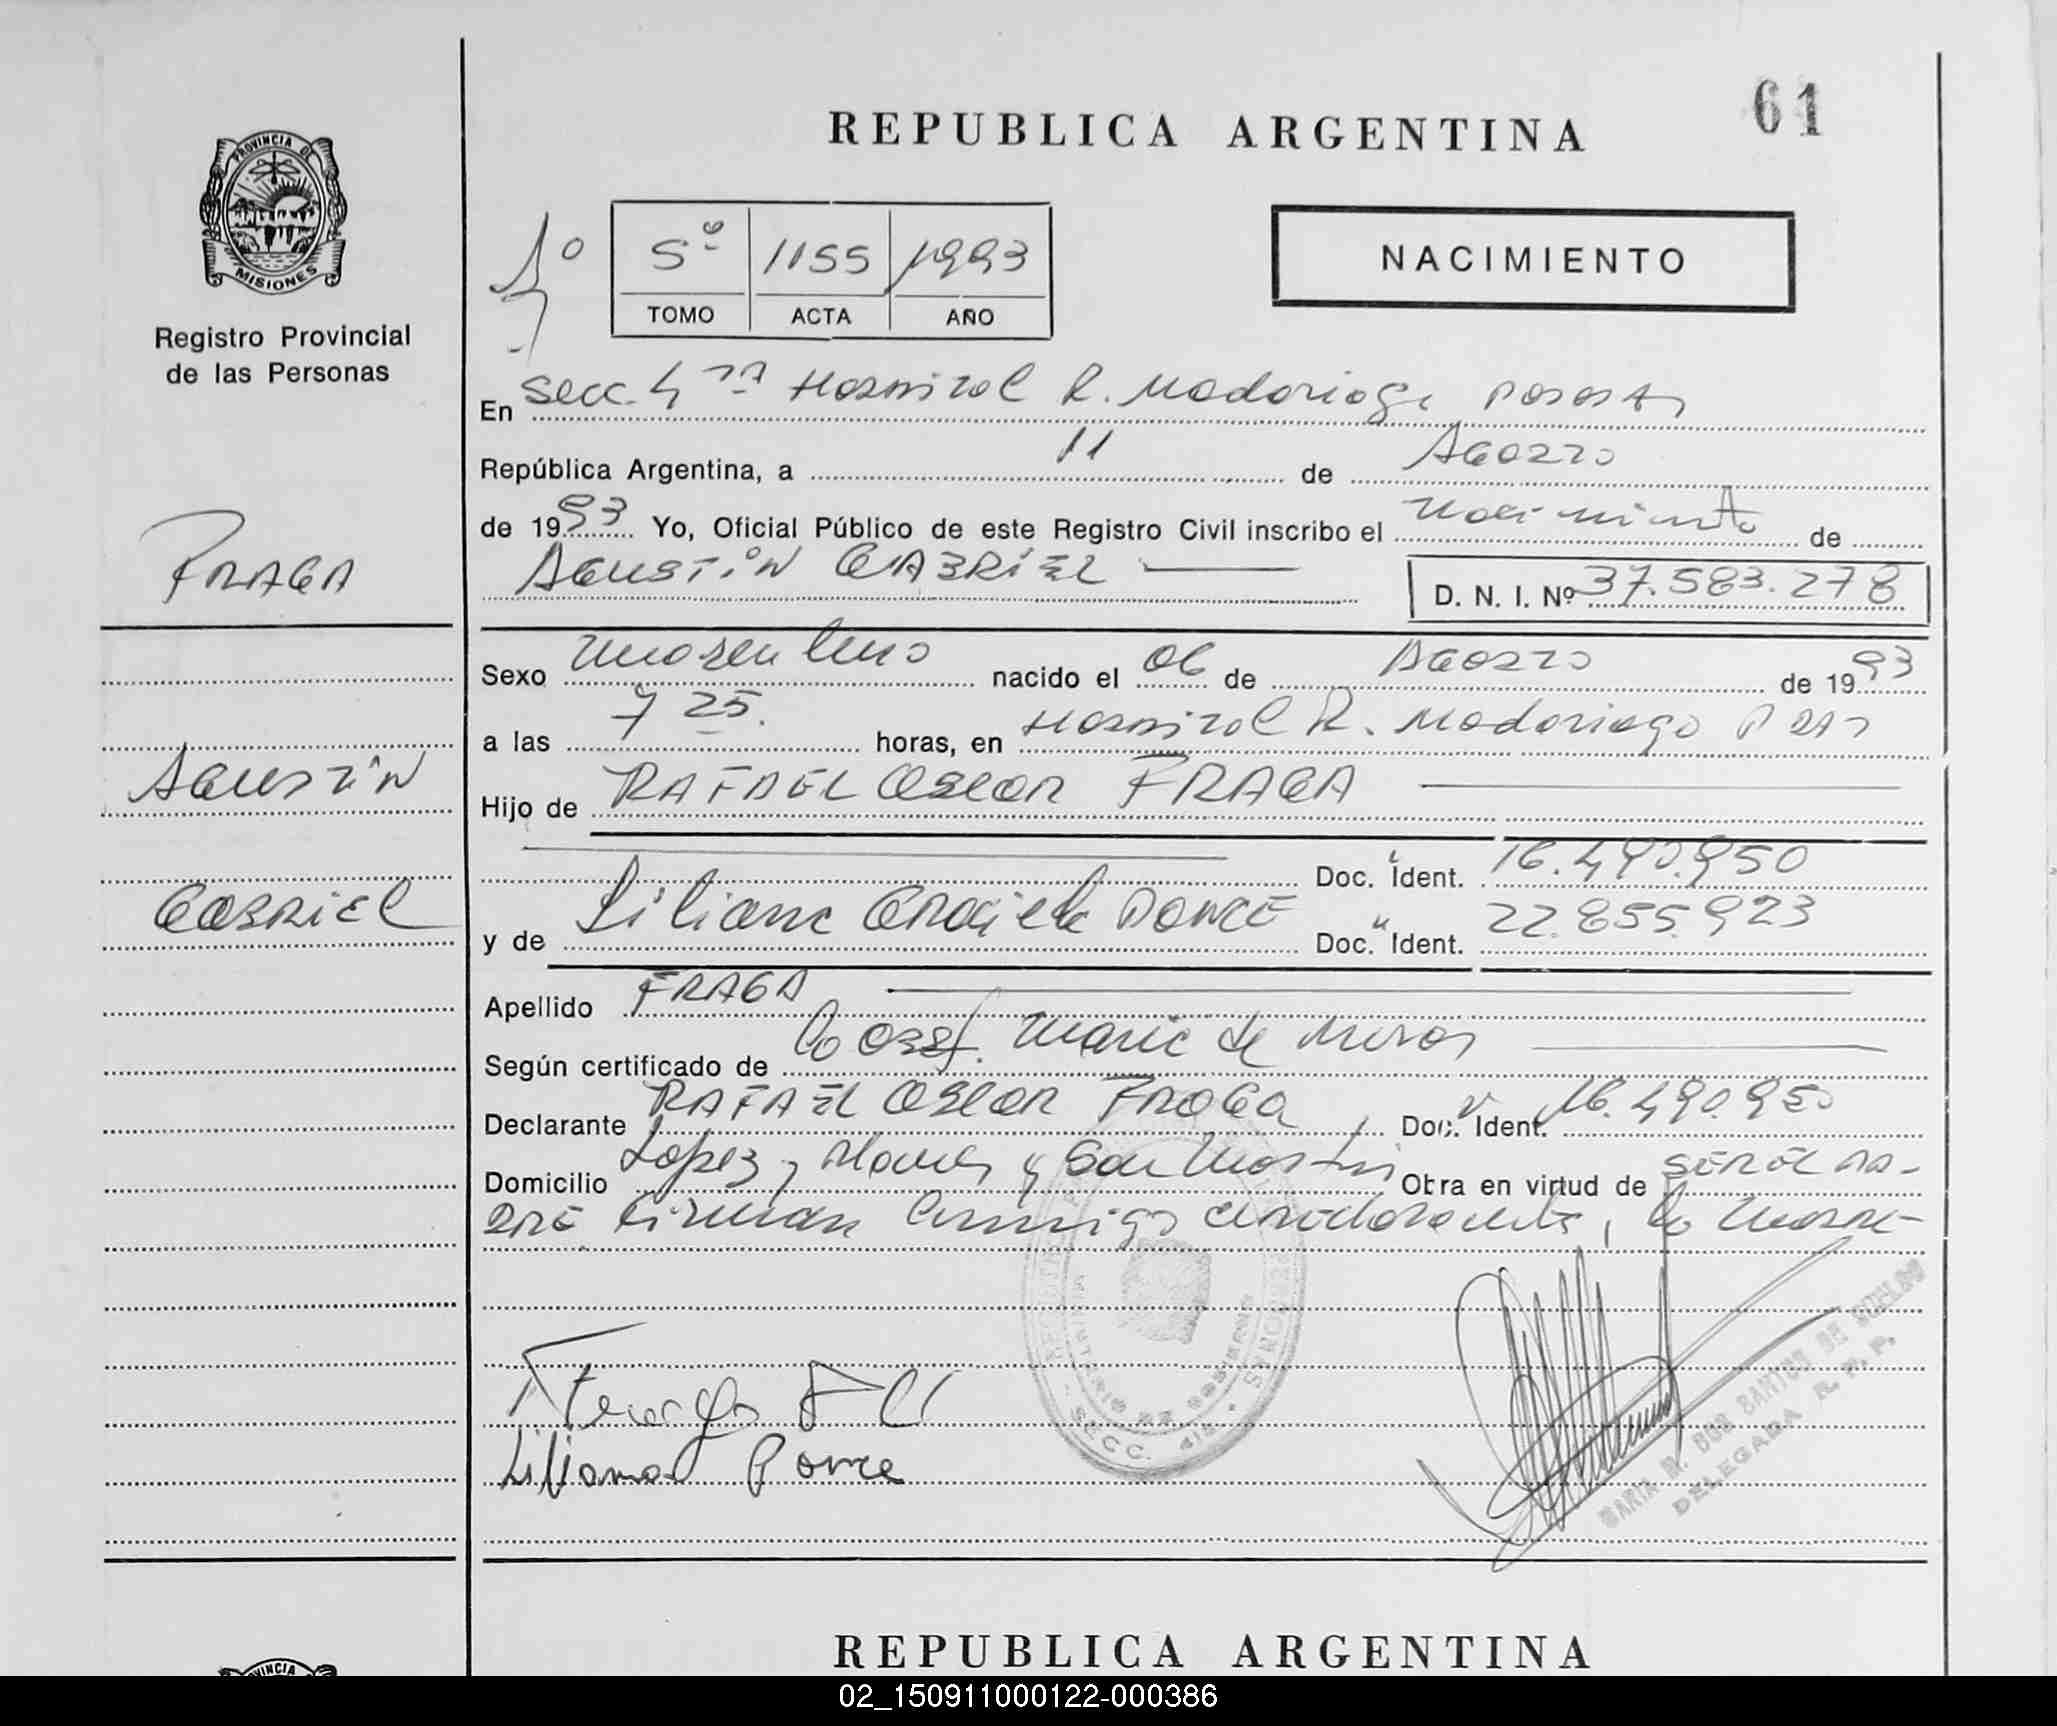 REPUBLICA ARGENTINA
61
PROVINCIA DE
MISIONES
Registro Provincial
de las Personas
5º 1155 1993
TOMO ACTA AÑO
NACIMIENTO
En Secc. 4ta Hospital R. Madariaga Posadas
República Argentina, a 11 de Agosto
de 1993 Yo, Oficial Público de este Registro Civil inscribo el Nacimiento de
AGUSTIN GABRIEL
D. N. I. Nº 37.583.278
FRAGA
AGUSTIN
GABRIEL
Sexo masculino nacido el 06 de Agosto de 1993
a las 7 25. horas, en Hospital R. Madariaga Pdas
Hijo de RAFAEL OSCAR FRAGA
Doc. Ident. 16.490.950
y de Liliana Graciela PONCE Doc. Ident. 22.855.923
Apellido FRAGA
Según certificado de la Obst. Maria de
Declarante RAFAEL OSCAR FRAGA Doc. Ident. 16.490.950
Domicilio Lopez y Planes y San Martin Obra en virtud de SER EL PA-
DRE Firman conmigo el declarante, la madre
Liliana Ponce
SECC. 4ta.
MINISTERIO DE GOBIERNO
MISIONES
DELEGADA R. P. P.
REPUBLICA ARGENTINA
02_150911000122-000386